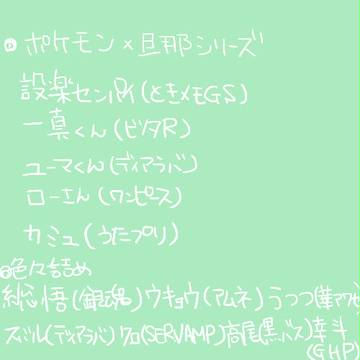 ◎ポケモン×旦那シリーズ
設楽センパイ(ときメモGS)
一真くん(ビタR)
ユーマくん(ディアラバ)
ローさん(ワンピース)
カミュ(うたプリ)
◎色々詰め
総悟(銀魂)ウキョウ(アムネ)うつつ(華アワセ)
スバル(ディアラバ)クロ(SERVAMP)高尾(黒バス)幸斗
(GHP)